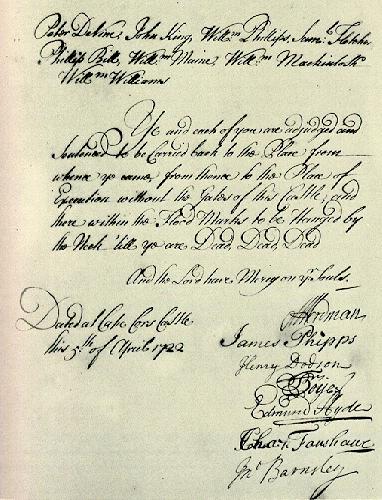 Peter Devine, John King, Willm Phillips, Saml Fletcher
Phillip Bill, Willm Maine, Willm Mackintosh
Willm Williams
Ye and each of you are adjudged and
Sentenced to be Carried back to the Place from
whence ye came, from thence to the Place of
Execution without the Gates of this Castle, and
there within the Flood Marks to be Hanged by
the Neck till ye are Dead, Dead, Dead
And the Lord have Mercy on yr Souls.
Dated at Cape Cors Castle
this 5th of April 1722
Herdman
James Phipps
Henry Dodson
Boye
Edmund Hyde
Chars Fanshawe
Jno Barnsley